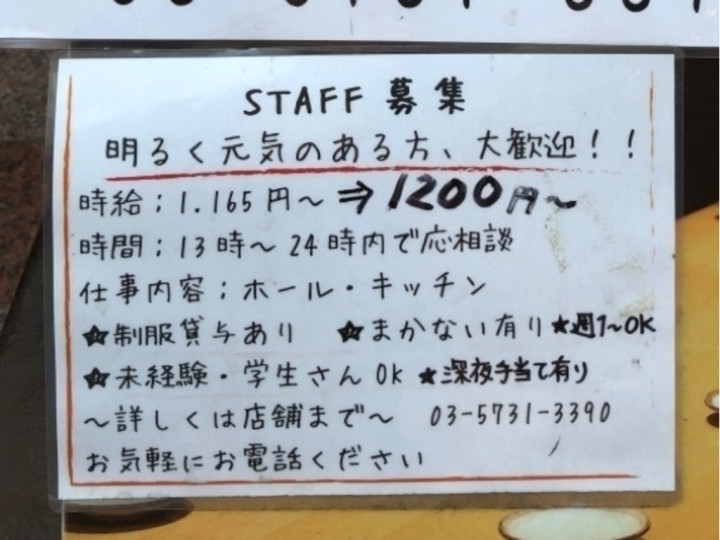 STAFF 募集
明るく元気のある方、大歓迎！！
時給；1.165円～⇒1200円～
時間；13時～24時内で応相談
仕事内容；ホール・キッチン
★制服貸与あり ★まかない有り★週1～OK
★未経験・学生さんOK ★深夜手当て有り
～詳しくは店舗まで～ 03-5731-3390
お気軽にお電話ください